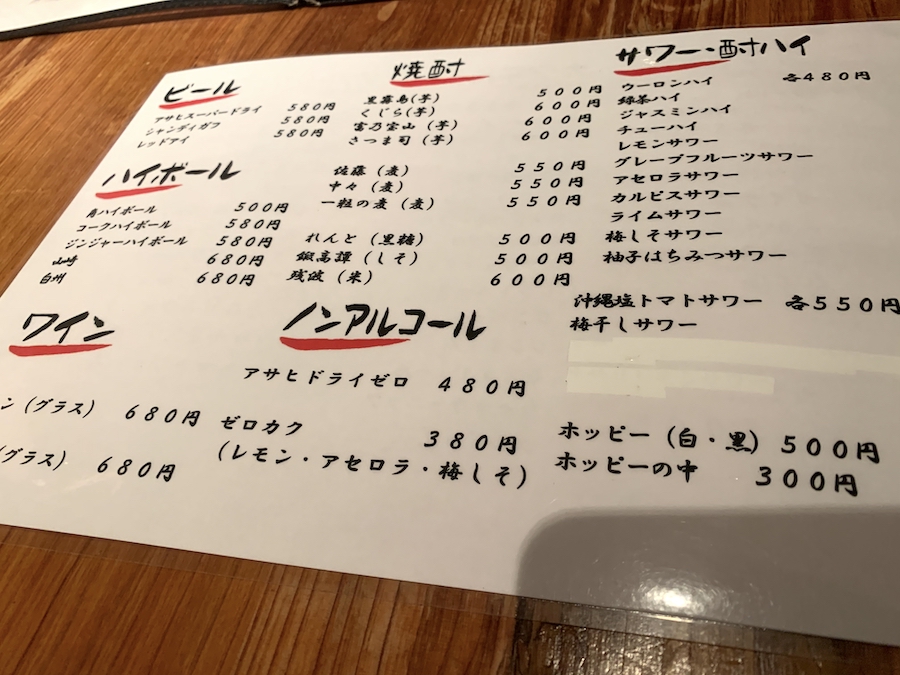 ビール
アサヒスーパードライ 580円
シャンディガフ 580円
レッドアイ 580円
ハイボール
角ハイボール 500円
コークハイボール 580円
ジンジャーハイボール 580円
山崎 680円
白州 680円
ワイン
ン（グラス） 680円
（グラス） 680円
焼酎
黒霧島(芋) 500円
くじら(芋) 600円
富乃宝山（芋） 600円
さつま司（芋） 600円
佐藤（麦） 550円
中々（麦） 550円
一粒の麦（麦） 550円
れんと（黒糖） 500円
鍛高譚（しそ） 500円
残波（米） 600円
ノンアルコール
アサヒドライゼロ 480円
ゼロカク 380円
（レモン・アセロラ・梅しそ）
サワー・酎ハイ
ウーロンハイ 各480円
緑茶ハイ
ジャスミンハイ
チューハイ
レモンサワー
グレープフルーツサワー
アセロラサワー
カルピスサワー
ライムサワー
梅しそサワー
柚子はちみつサワー
沖縄塩トマトサワー 各550円
梅干しサワー
ホッピー（白・黒） 500円
ホッピーの中 300円